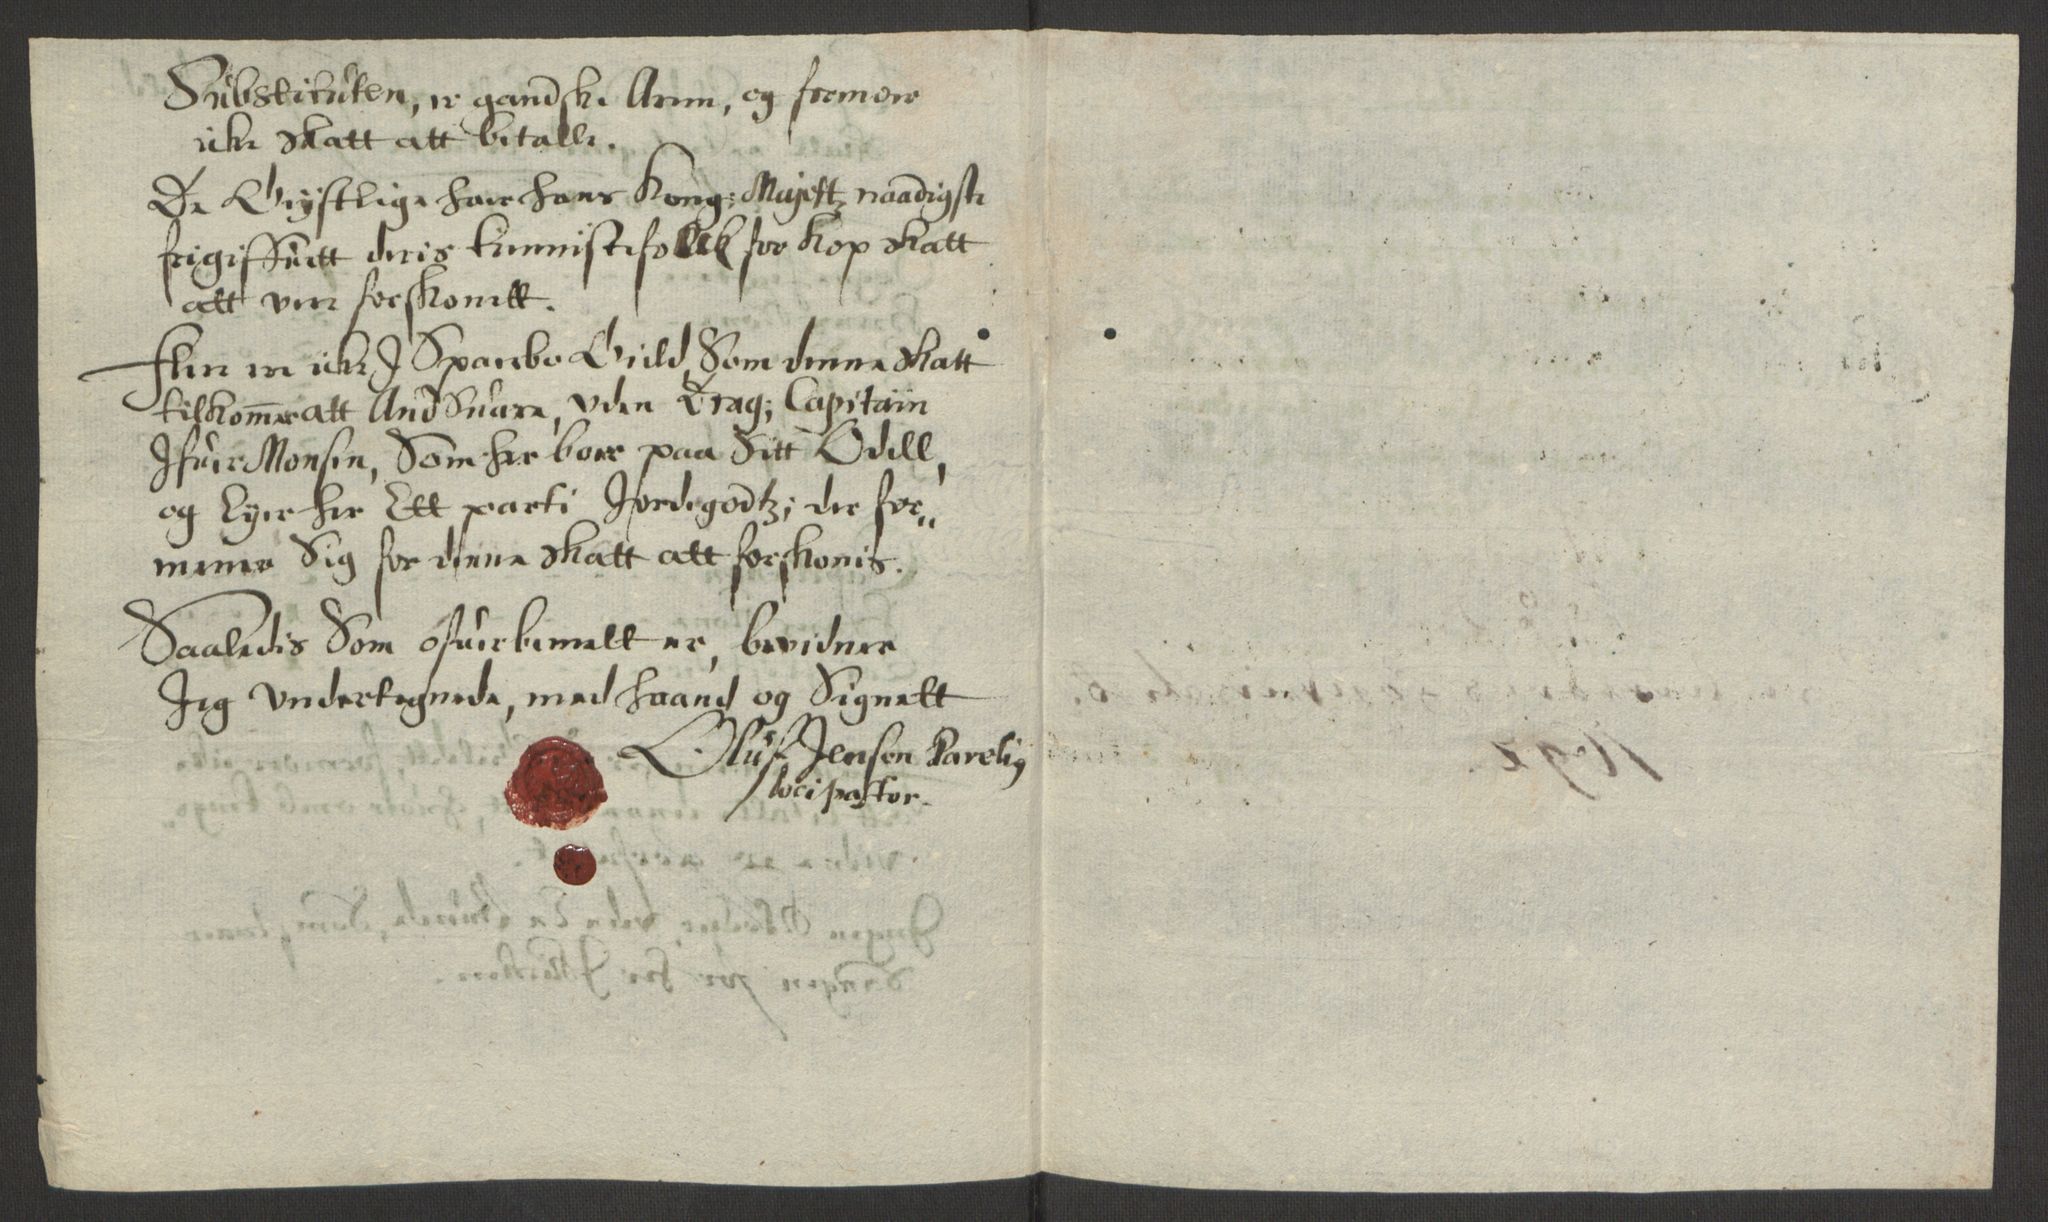 Substituten, er gandske Arm, og formoer
icke skatt att betalle.
De Geystlige haer hans Kong: Mayest: naadigste
frigiffuett deris tienniste folck for Kop skatt
att vere forskonett.
Flere ere icke J Sparbo Gield, Som denne skatt
tilkommer att Andsuare, vden Drag: Capitaiin
Jfuer Monsen, Som her boer paa Sitt Odell,
og Eyer her Ett parti Jordegodtz; der for„
mener Sig for denne skatt att forskonis.
Saaledis Som ofuerbemelt er, bevidner
Jeg vndertegnede, med haand og Signett
Oluf Jensen Parelig
loci pastor.